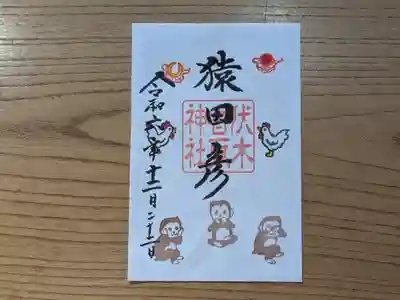 猿田彦
伏木
神社
令和六年十二月二十二日